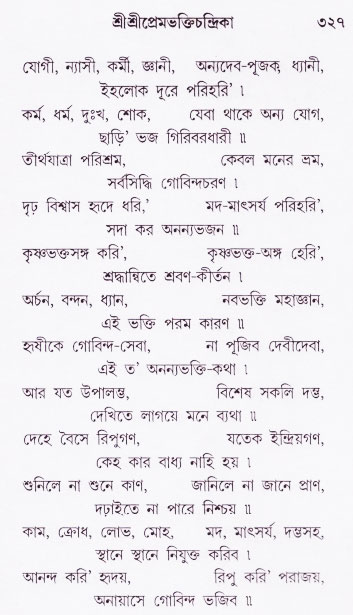 শ্রীশ্রীপ্রেমভক্তিচন্দ্রিকা ৩২৭
যোগী, ন্যাসী, কর্মী, জ্ঞানী, অন্যদেব-পূজক, ধ্যানী,
ইহলোক দূরে পরিহরি’ ৷
কর্ম, ধর্ম, দুঃখ, শোক, যেবা থাকে অন্য যোগ,
ছাড়ি’ ভজ গিরিবরধারী ৷৷
তীর্থযাত্রা পরিশ্রম, কেবল মনের ভ্রম,
সর্বসিদ্ধি গোবিন্দচরণ ৷
দৃঢ় বিশ্বাস হৃদে ধরি,’ মদ-মাৎসর্য পরিহরি’,
সদা কর অনন্যভজন ৷৷
কৃষ্ণভক্তসঙ্গ করি’, কৃষ্ণভক্ত-অঙ্গ হেরি’,
শ্রদ্ধান্বিতে শ্রবণ-কীর্তন ৷
অর্চন, বন্দন, ধ্যান, নবভক্তি মহাজ্ঞান,
এই ভক্তি পরম কারণ ৷৷
হৃষীকে গোবিন্দ-সেবা, না পূজিব দেবীদেবা,
এই ত’ অনন্যভক্তি-কথা ৷
আর যত উপালম্ভ, বিশেষ সকলি দম্ভ,
দেখিতে লাগয়ে মনে ব্যথা ৷৷
দেহে বৈসে রিপুগণ, যতেক ইন্দ্রিয়গণ,
কেহ কার বাধ্য নাহি হয় ৷
শুনিলে না শুনে কাণ, জানিলে না জানে প্রাণ,
দঢ়াইতে না পারে নিশ্চয় ৷৷
কাম, ক্রোধ, লোভ, মোহ, মদ, মাৎসর্য, দম্ভসহ,
স্থানে স্থানে নিযুক্ত করিব ৷
আনন্দ করি’ হৃদয়, রিপু করি’ পরাজয়,
অনায়াসে গোবিন্দ ভজিব ৷৷